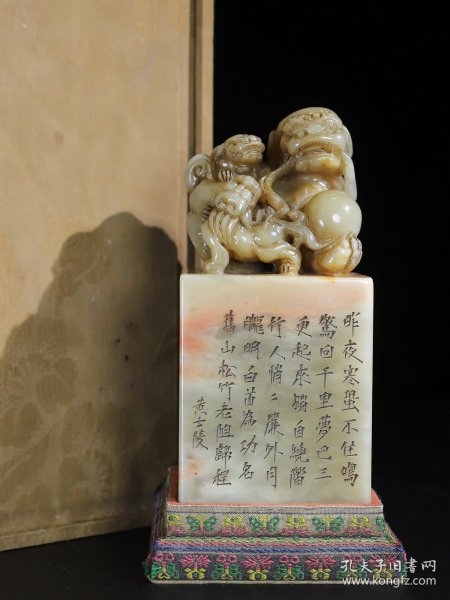 昨夜寒蛩不住鳴
驚回千里夢已三
更起來獨自繞階
行人悄二簾外月
朧明白首為功名
舊山松竹老阻歸程
黃士陵
孔夫子旧书网
www.kongfz.com